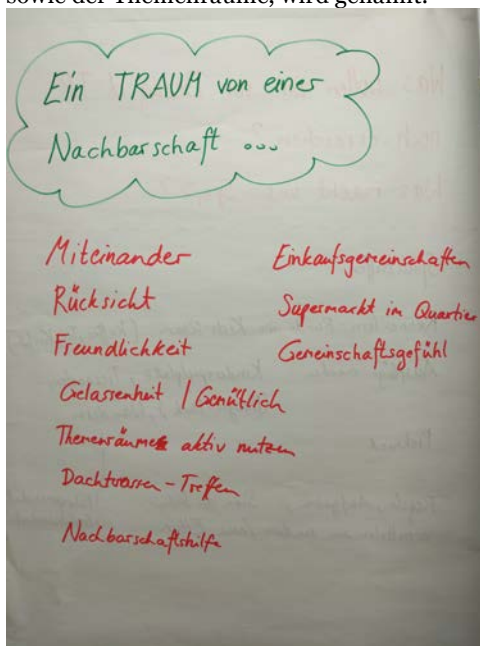 sowie der Themenräume, wird genannt.
Ein TRAUM von einer
Nachbarschaft ...
Miteinander
Rücksicht
Freundlichkeit
Gelassenheit / Gemütlich
Themenräume aktiv nutzen
Dachterrassen-Treffen
Nachbarschaftshilfe
Einkaufsgemeinschaften
Supermarkt im Quartier
Gemeinschaftsgefühl